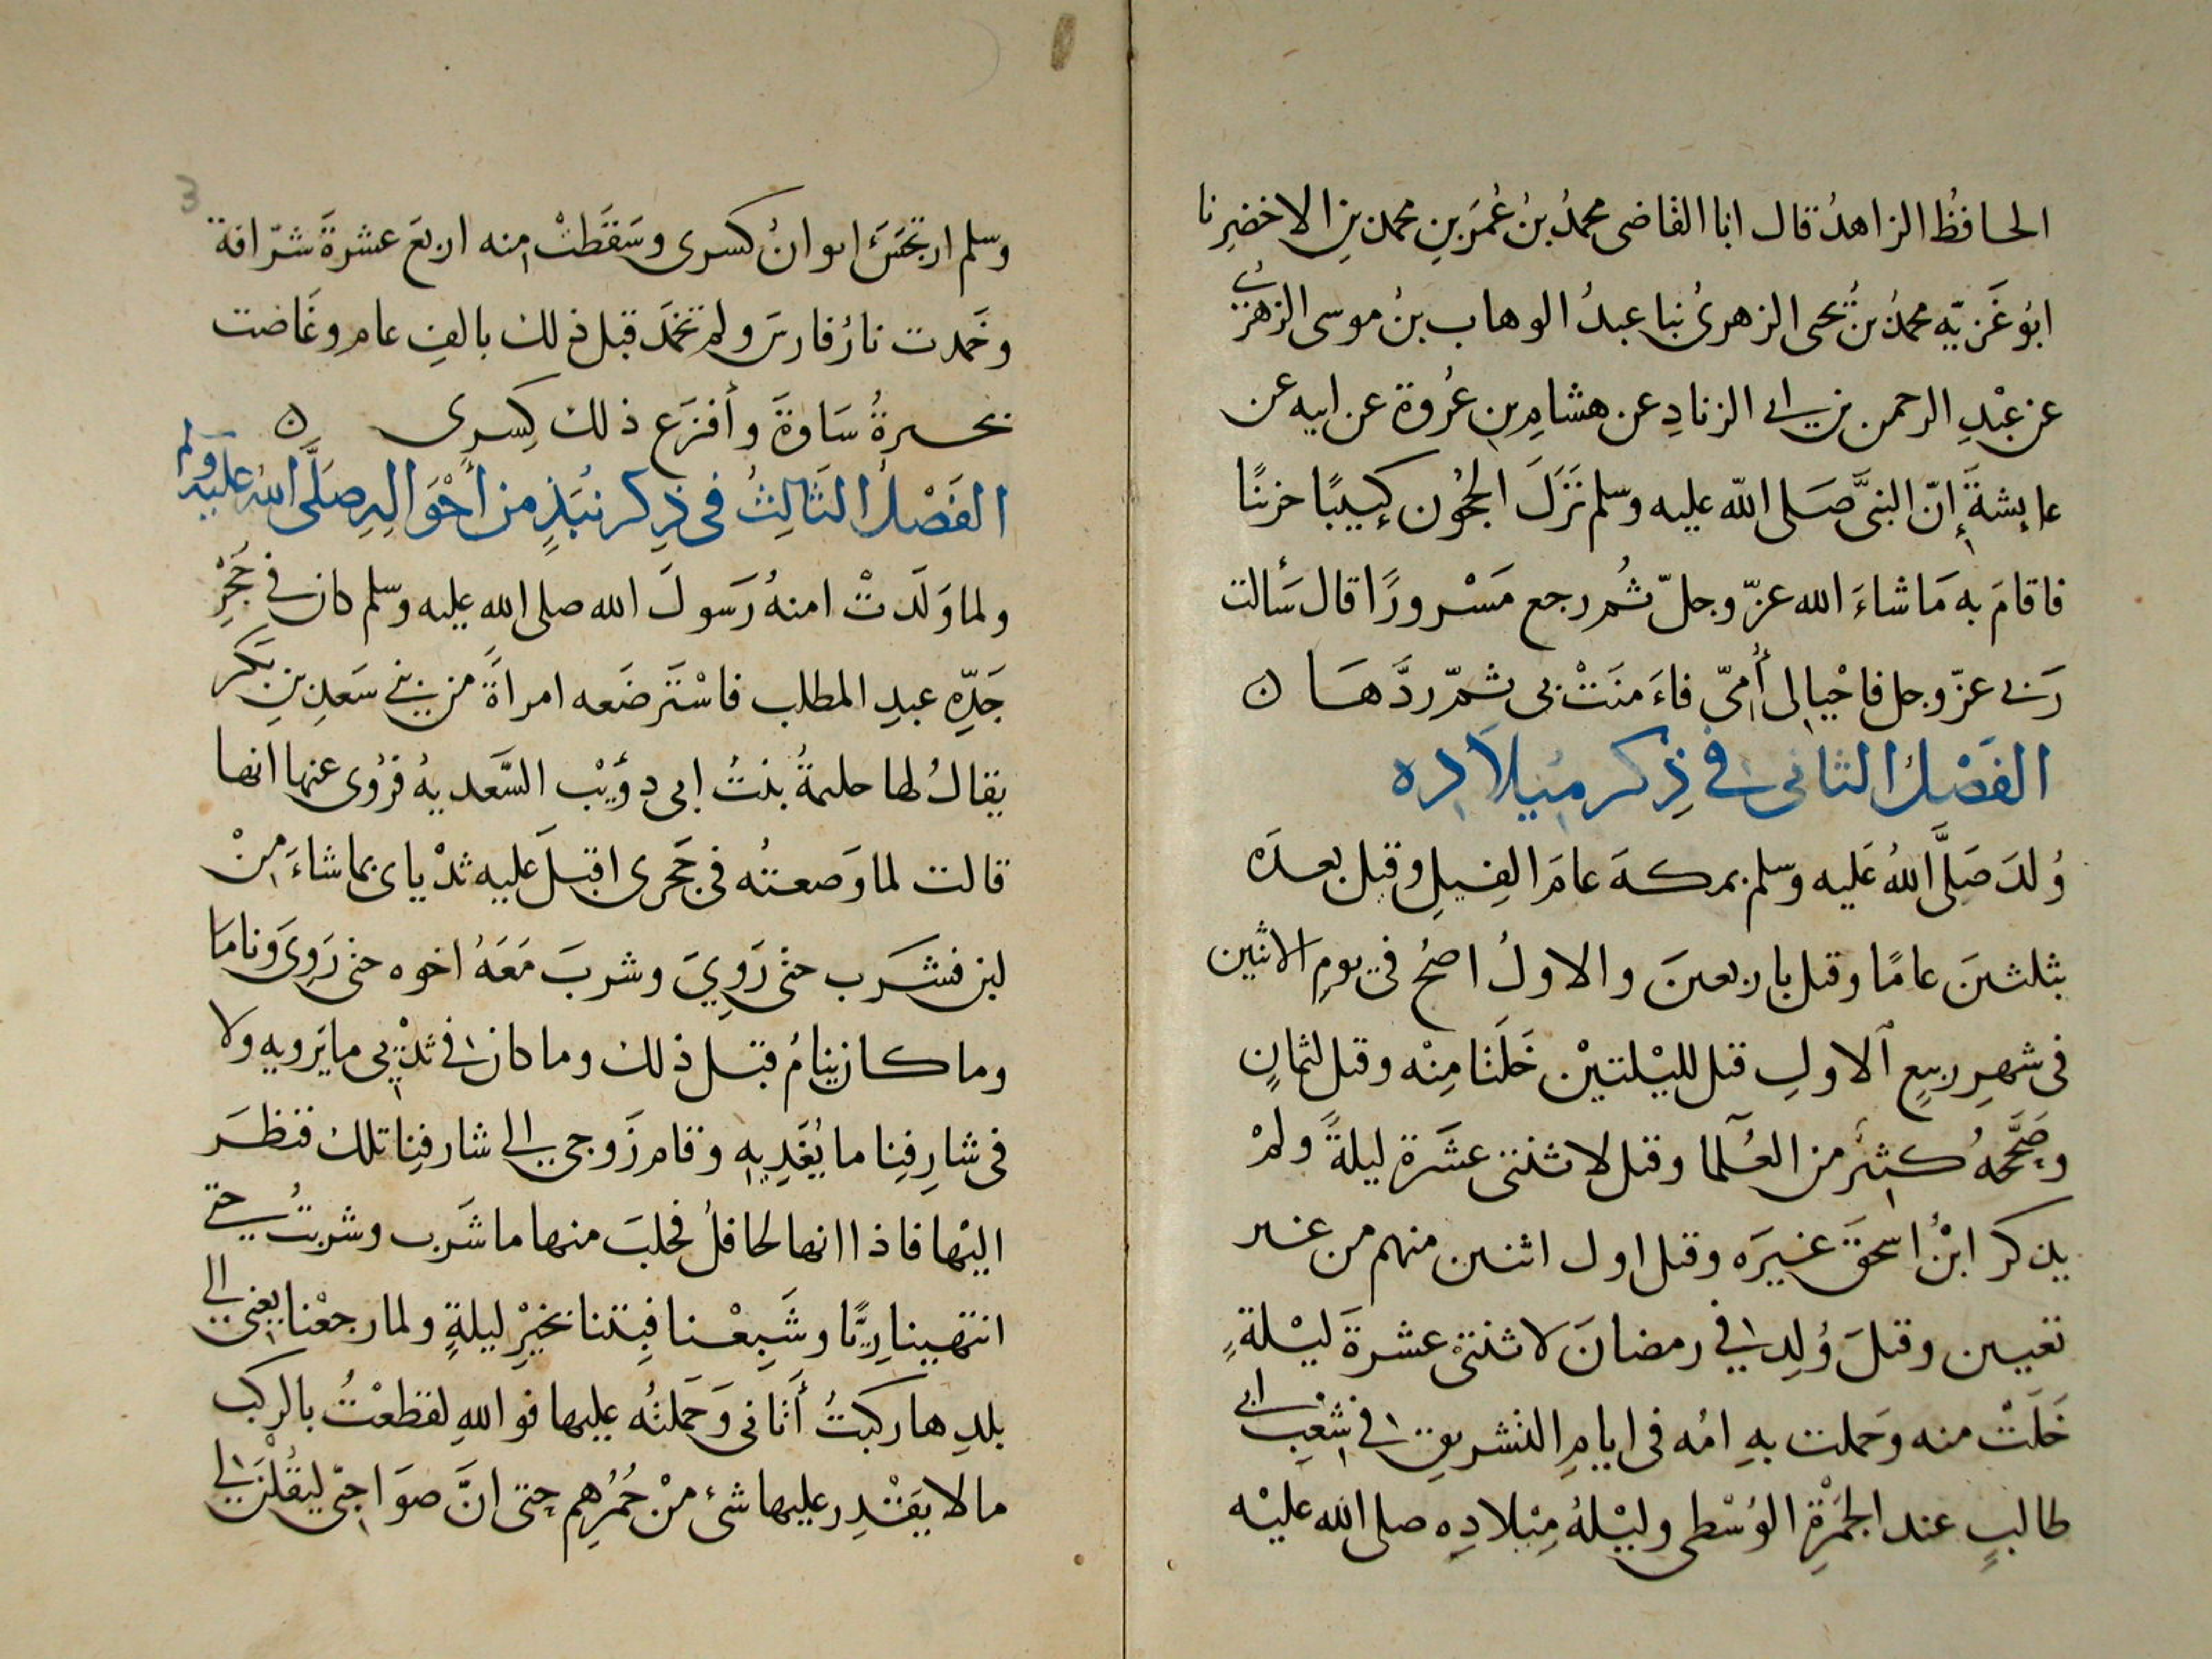 الحافظُ الزاهدُ قال انا القاضى محمدُ بنُ عُمَرَ بنِ محمد بنِ الاخضرِ نا
ابُو غَزيّه محمدُ بنُ يحى الزهرىُ نبا عبدُ الوهاب بنُ موسى الزهرىُ
عن عبْدِ الرحمن بن ابى الزنادِ عن هشامِ بنِ عُروة عن ابيه عن
عايشةَ إنّ النبىَّ صَلى الله عليه وسلم نَزَلَ الحجُون كييبًا حزينًا
فاقامَ به مَا شاءَ الله عزّ وجلّ ثُم رجع مَسْرورًا قال سَألت
رَبى عزّ وجل فاحْيا لى أُمىّ فاءَمنَتْ بى ثمّ ردَّهَا ن
الفَصْلُ الثانى فى ذِكر ميلَادِه
وُلدَ صَلَّى اللهُ عَليه وسلم بمكةَ عامَ الفِيلِ وقيل بعدَه
بثلثينَ عامًا وقيل باربعينَ والاولُ اصحُ فى يومِ الاثنين
فى شهرِ ربيعِ الاولِ قيل لليْلتيْن خَلَتا مِنْه وقيل لثمانٍ
وصَحَّحهُ كثيرٌ من العُلَما وقيل لاثنتى عشَرة ليلةً ولمْ
يذكر ابْنُ اسحقَ غيرَه وقيل اول اثنين منهم من غير
تعيين وقيلَ وُلِد فى رمضانَ لاثنتىْ عشرةَ ليْلةٍ
خَلَتْ منه وحَملت بهِ امُه فى ايامِ التشريقِ فى شِعْبِ ابى
طالبٍ عند الجمْرةِ الوُسْطى وليْلةُ مِيْلادِه صلى الله عليْه
وسلم ارتجَسَ ايوانُ كسرى وسَقَطتْ منه اربعَ عشرةَ شرّافة
وخَمدت نارُ فارسَ ولم تخمَد قبل ذلك بالفِ عام وغَاضت
بحيرةُ سَاوةَ وأفزَع ذلك كِسرى ن
الفَصْلُ الثَالِثُ فى ذِكر نُبَذٍ من أحْوَالِهِ صَلَّى اللهُ عليْه وسلم
ولما وَلَدتْ امنهُ رَسولَ الله صلى الله عليه وسلم كان فى حَجْرِ
جَدِّهِ عبدِ المطلب فاسْتَرضَعه امراةً من بنى سَعدِ بنِ بَكر
يقالُ لها حليمةُ بنتُ ابى دؤَيْب السَّعديهُ فرُوى عنها انها
قالت لما وَضعتُه فى حَجرى اقبلَ عليه ثدْياى بما شاءَ مِنْ
لبن فشَرب حتى رَوِيَ وشربَ مَعَهُ اخوه حتى رَوِىَ ونامَا
وما كان ينامُ قبل ذلك وما كان فى ثدْيى ما يَرويهِ ولا
فى شارِفِنا ما يُغَدِيهِ وقام زَوجى الى شارفِنا تلك فنظَرَ
اليْها فاذا انها لحافلُ فحلبَ منها ما شَرب وشربتُ حتى
انتهينا رِيًّا وشَبِعْنا فبِتنا بخيْرِ ليلةٍ ولما رجعْنا يعنى الى
بلدِها ركبتُ أتانى وَحَملتُه عليها فو اللهِ لقطعْتُ بالركب
ما لا يقْدِر عليها شىء منْ حُمُرِهِم حتى انَّ صوَاحبى ليقُلْنَ لى